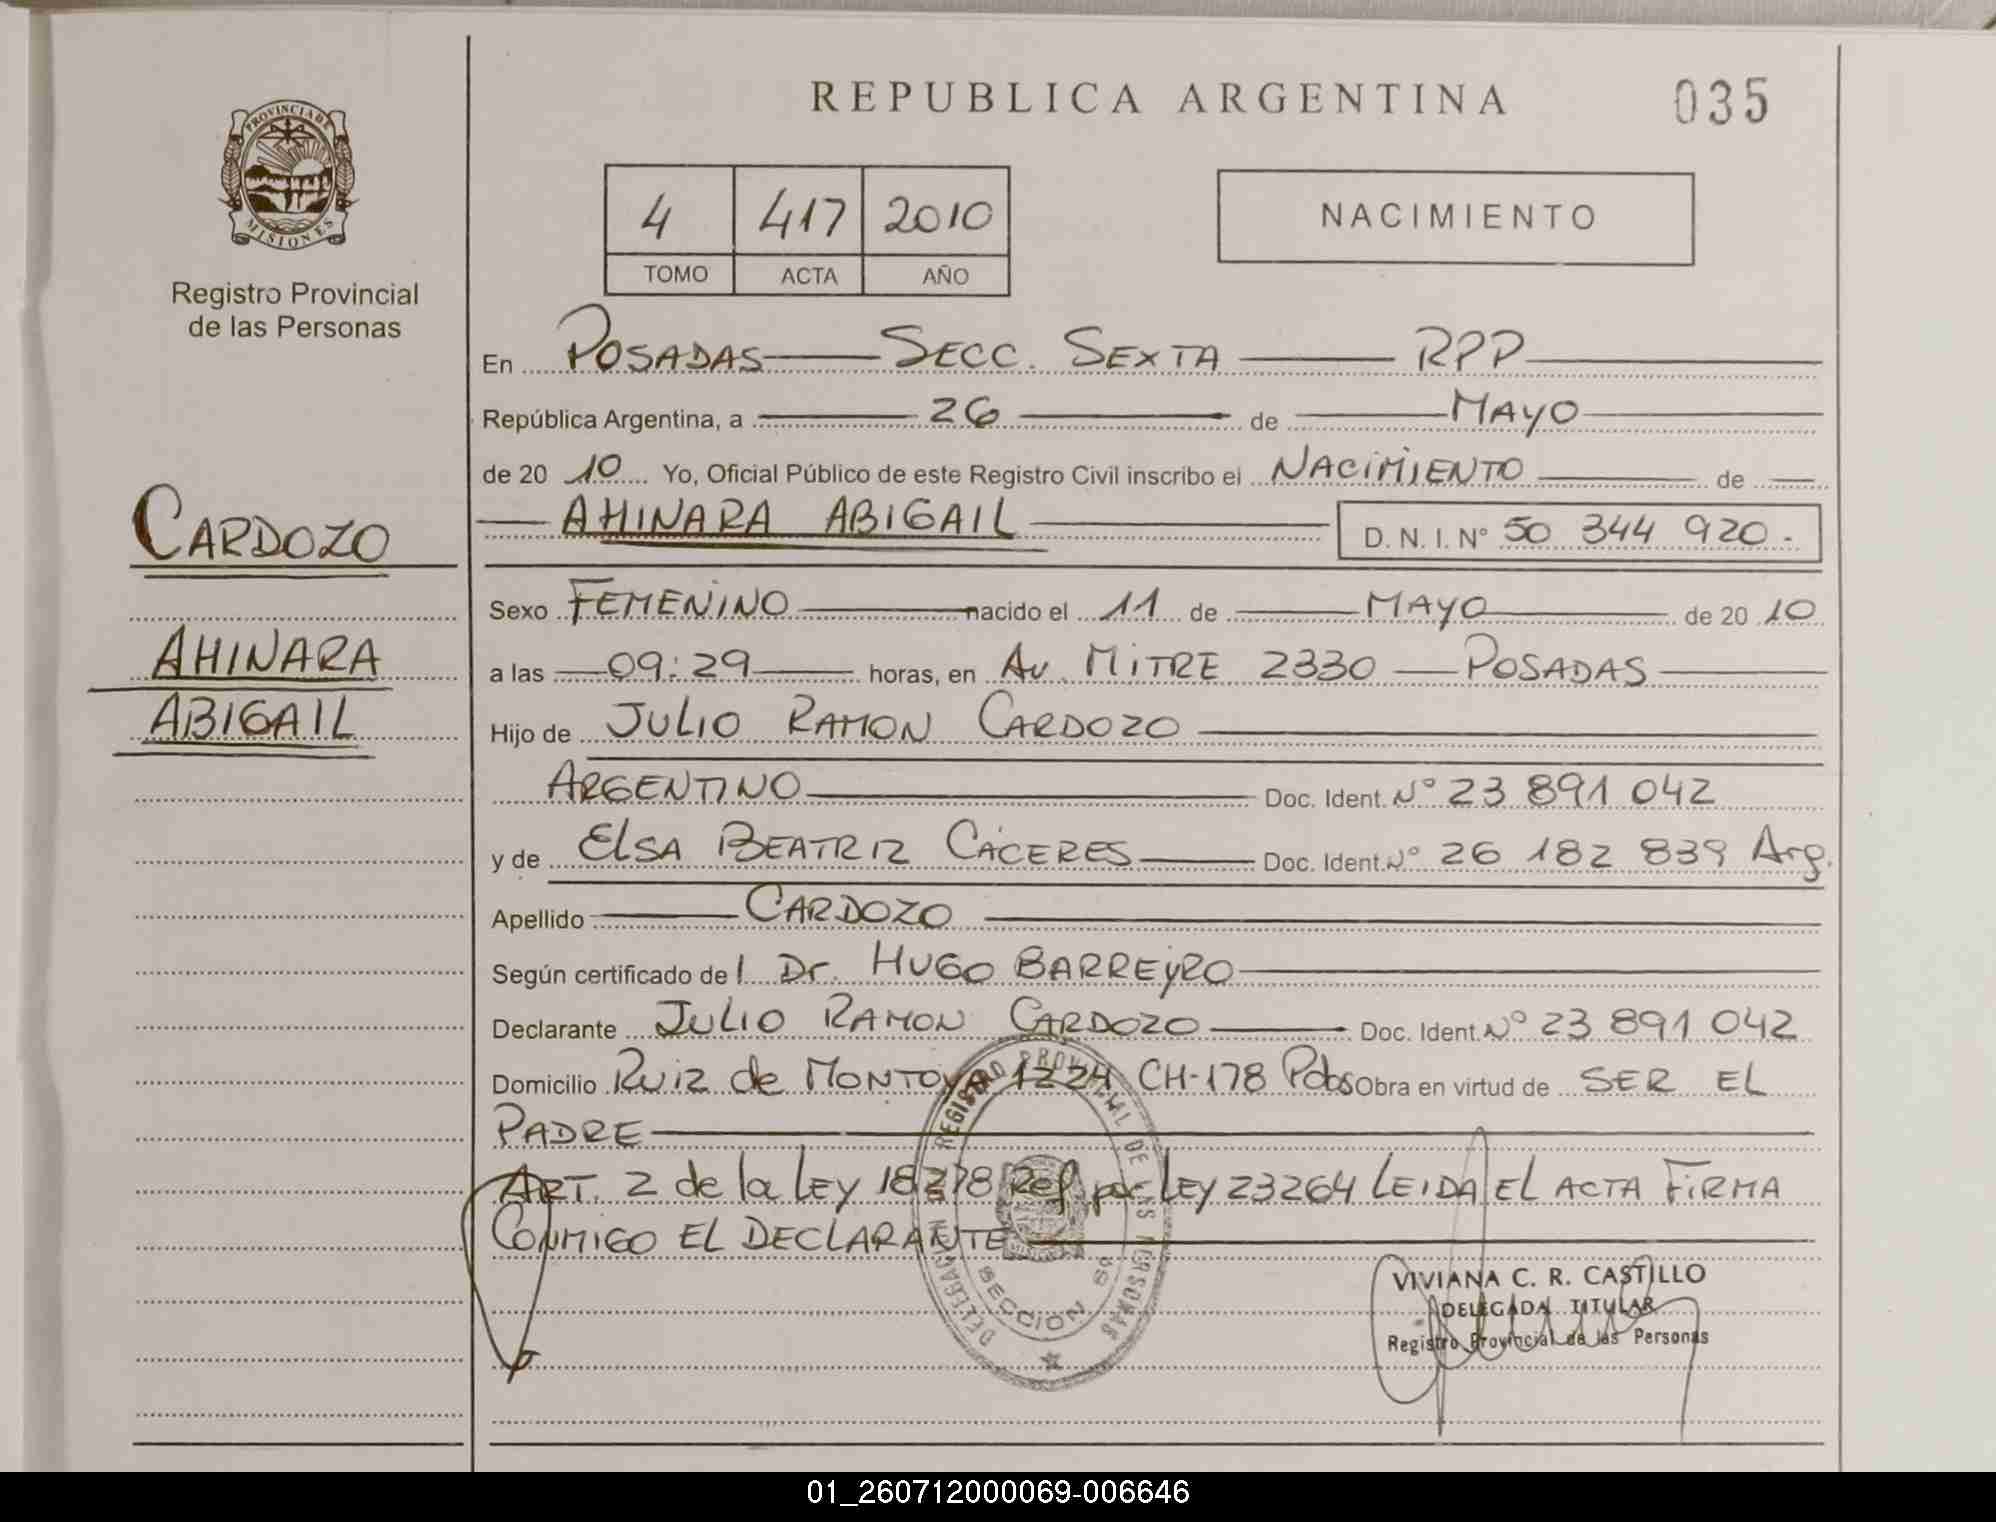 REPUBLICA ARGENTINA
035
PROVINCIA DE
MISIONES
Registro Provincial
de las Personas
4 417 2010
TOMO ACTA AÑO
NACIMIENTO
En POSADAS SECC. SEXTA RPP
República Argentina, a 26 de MAYO
de 20 10 Yo, Oficial Público de este Registro Civil inscribo el NACIMIENTO de
AHINARA ABIGAIL D.N.I. N° 50 344 920.-
CARDOZO
AHINARA
ABIGAIL
Sexo FEMENINO nacido el 11 de MAYO de 20 10
a las 09:29 horas, en Av. MITRE 2330 POSADAS
Hijo de JULIO RAMON CARDOZO
ARGENTINO Doc. Ident. N° 23 891 042
y de ELSA BEATRIZ CÁCERES Doc. Ident. N° 26 182 839 Arg.
Apellido CARDOZO
Según certificado del Dr. HUGO BARREYRO
Declarante JULIO RAMON CARDOZO Doc. Ident. N° 23 891 042
Domicilio RUIZ de MONTOYA 1224 CH-178 Pdas Obra en virtud de SER EL
PADRE
ART. 2 de la LEY 18278 Ref por LEY 23264 LEIDA EL ACTA FIRMA
CONMIGO EL DECLARANTE
REGISTRO PROVINCIAL DE LAS PERSONAS
SECCION 6ª
VIVIANA C. R. CASTILLO
DELEGADA TITULAR
Registro Provincial de las Personas
01_260712000069-006646